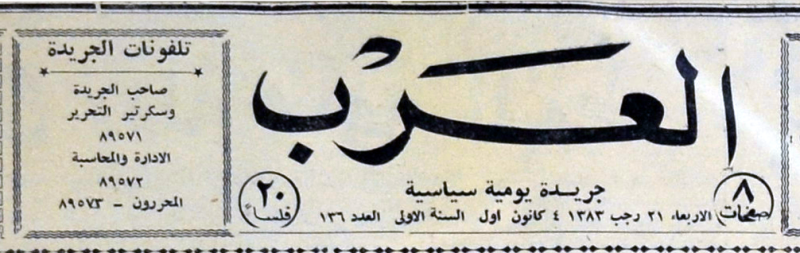 العرب
جريدة يومية سياسية
٨ صفحات
الاربعاء ٢١ رجب ١٣٨٣ ٤ كانون اول السنة الاولى العدد ١٣٦
٢٠ فلسا
تلفونات الجريدة
صاحب الجريدة
وسكرتير التحرير
٨٩٥٧١
الادارة والمحاسبة
٨٩٥٧٢
المحررون - ٨٩٥٧٣